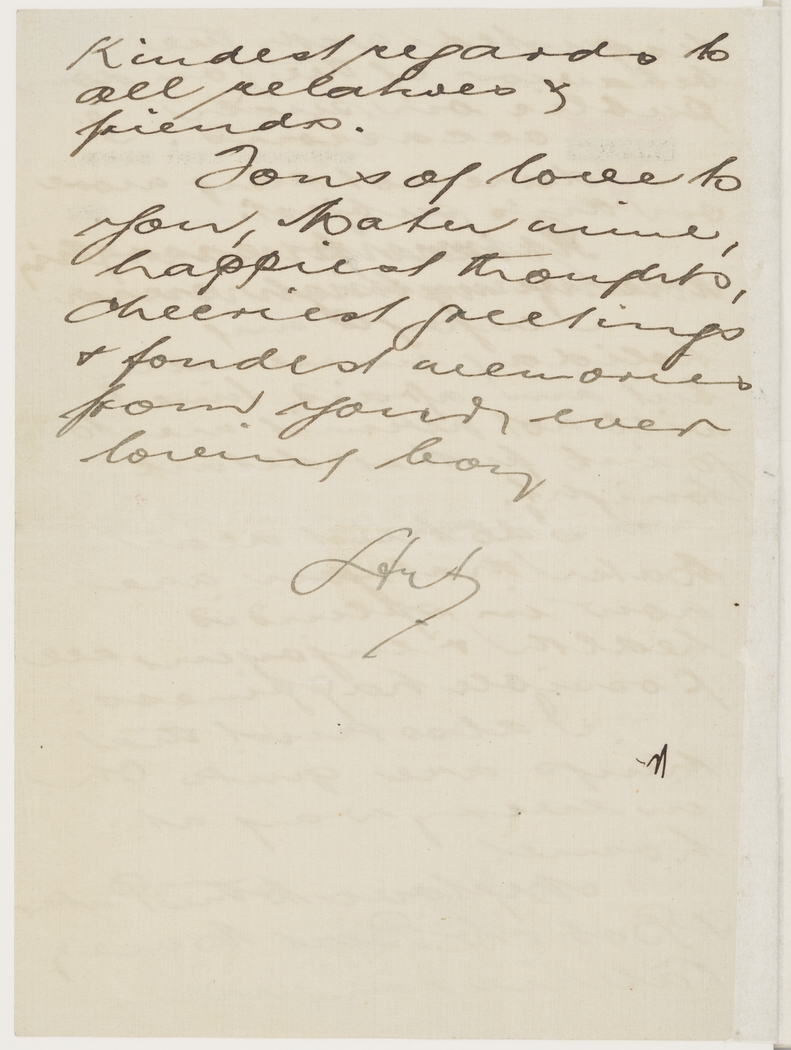 Kindest regards to
all relatives &
friends.
Tons of love to
you, Mater mine,
happiest thoughts,
cheeriest greetings
& fondest memories
from your ever
loving boy